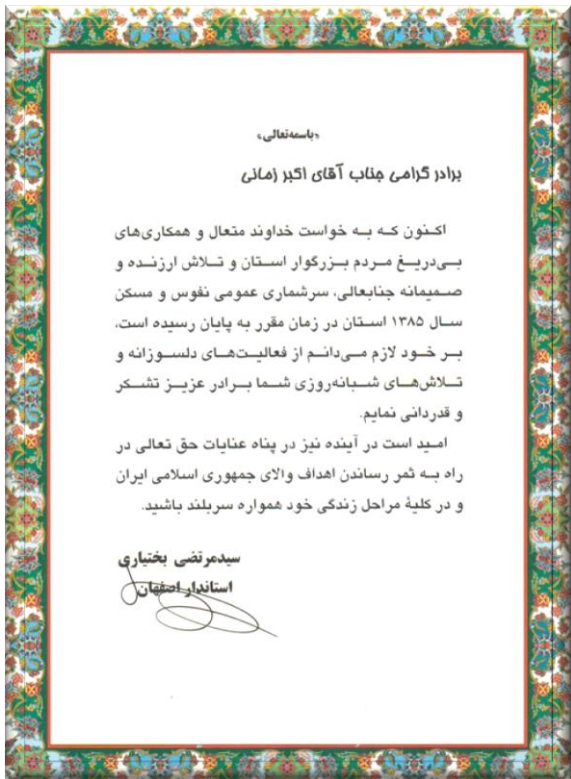 «باسمه‌تعالی»
برادر گرامی جناب آقای اکبر زمانی
اکنون که به خواست خداوند متعال و همکاری‌های
بی‌دریغ مردم بزرگوار استان و تلاش ارزنده و
صمیمانه جنابعالی، سرشماری عمومی نفوس و مسکن
سال ۱۳۸۵ استان در زمان مقرر به پایان رسیده است،
بر خود لازم می‌دانم از فعالیت‌های دلسوزانه و
تلاش‌های شبانه‌روزی شما برادر عزیز تشکر
و قدردانی نمایم.
امید است در آینده نیز در پناه عنایات حق تعالی در
راه به ثمر رساندن اهداف والای جمهوری اسلامی ایران
و در کلیهٔ مراحل زندگی خود همواره سربلند باشید.
سیدمرتضی بختیاری
استاندار اصفهان